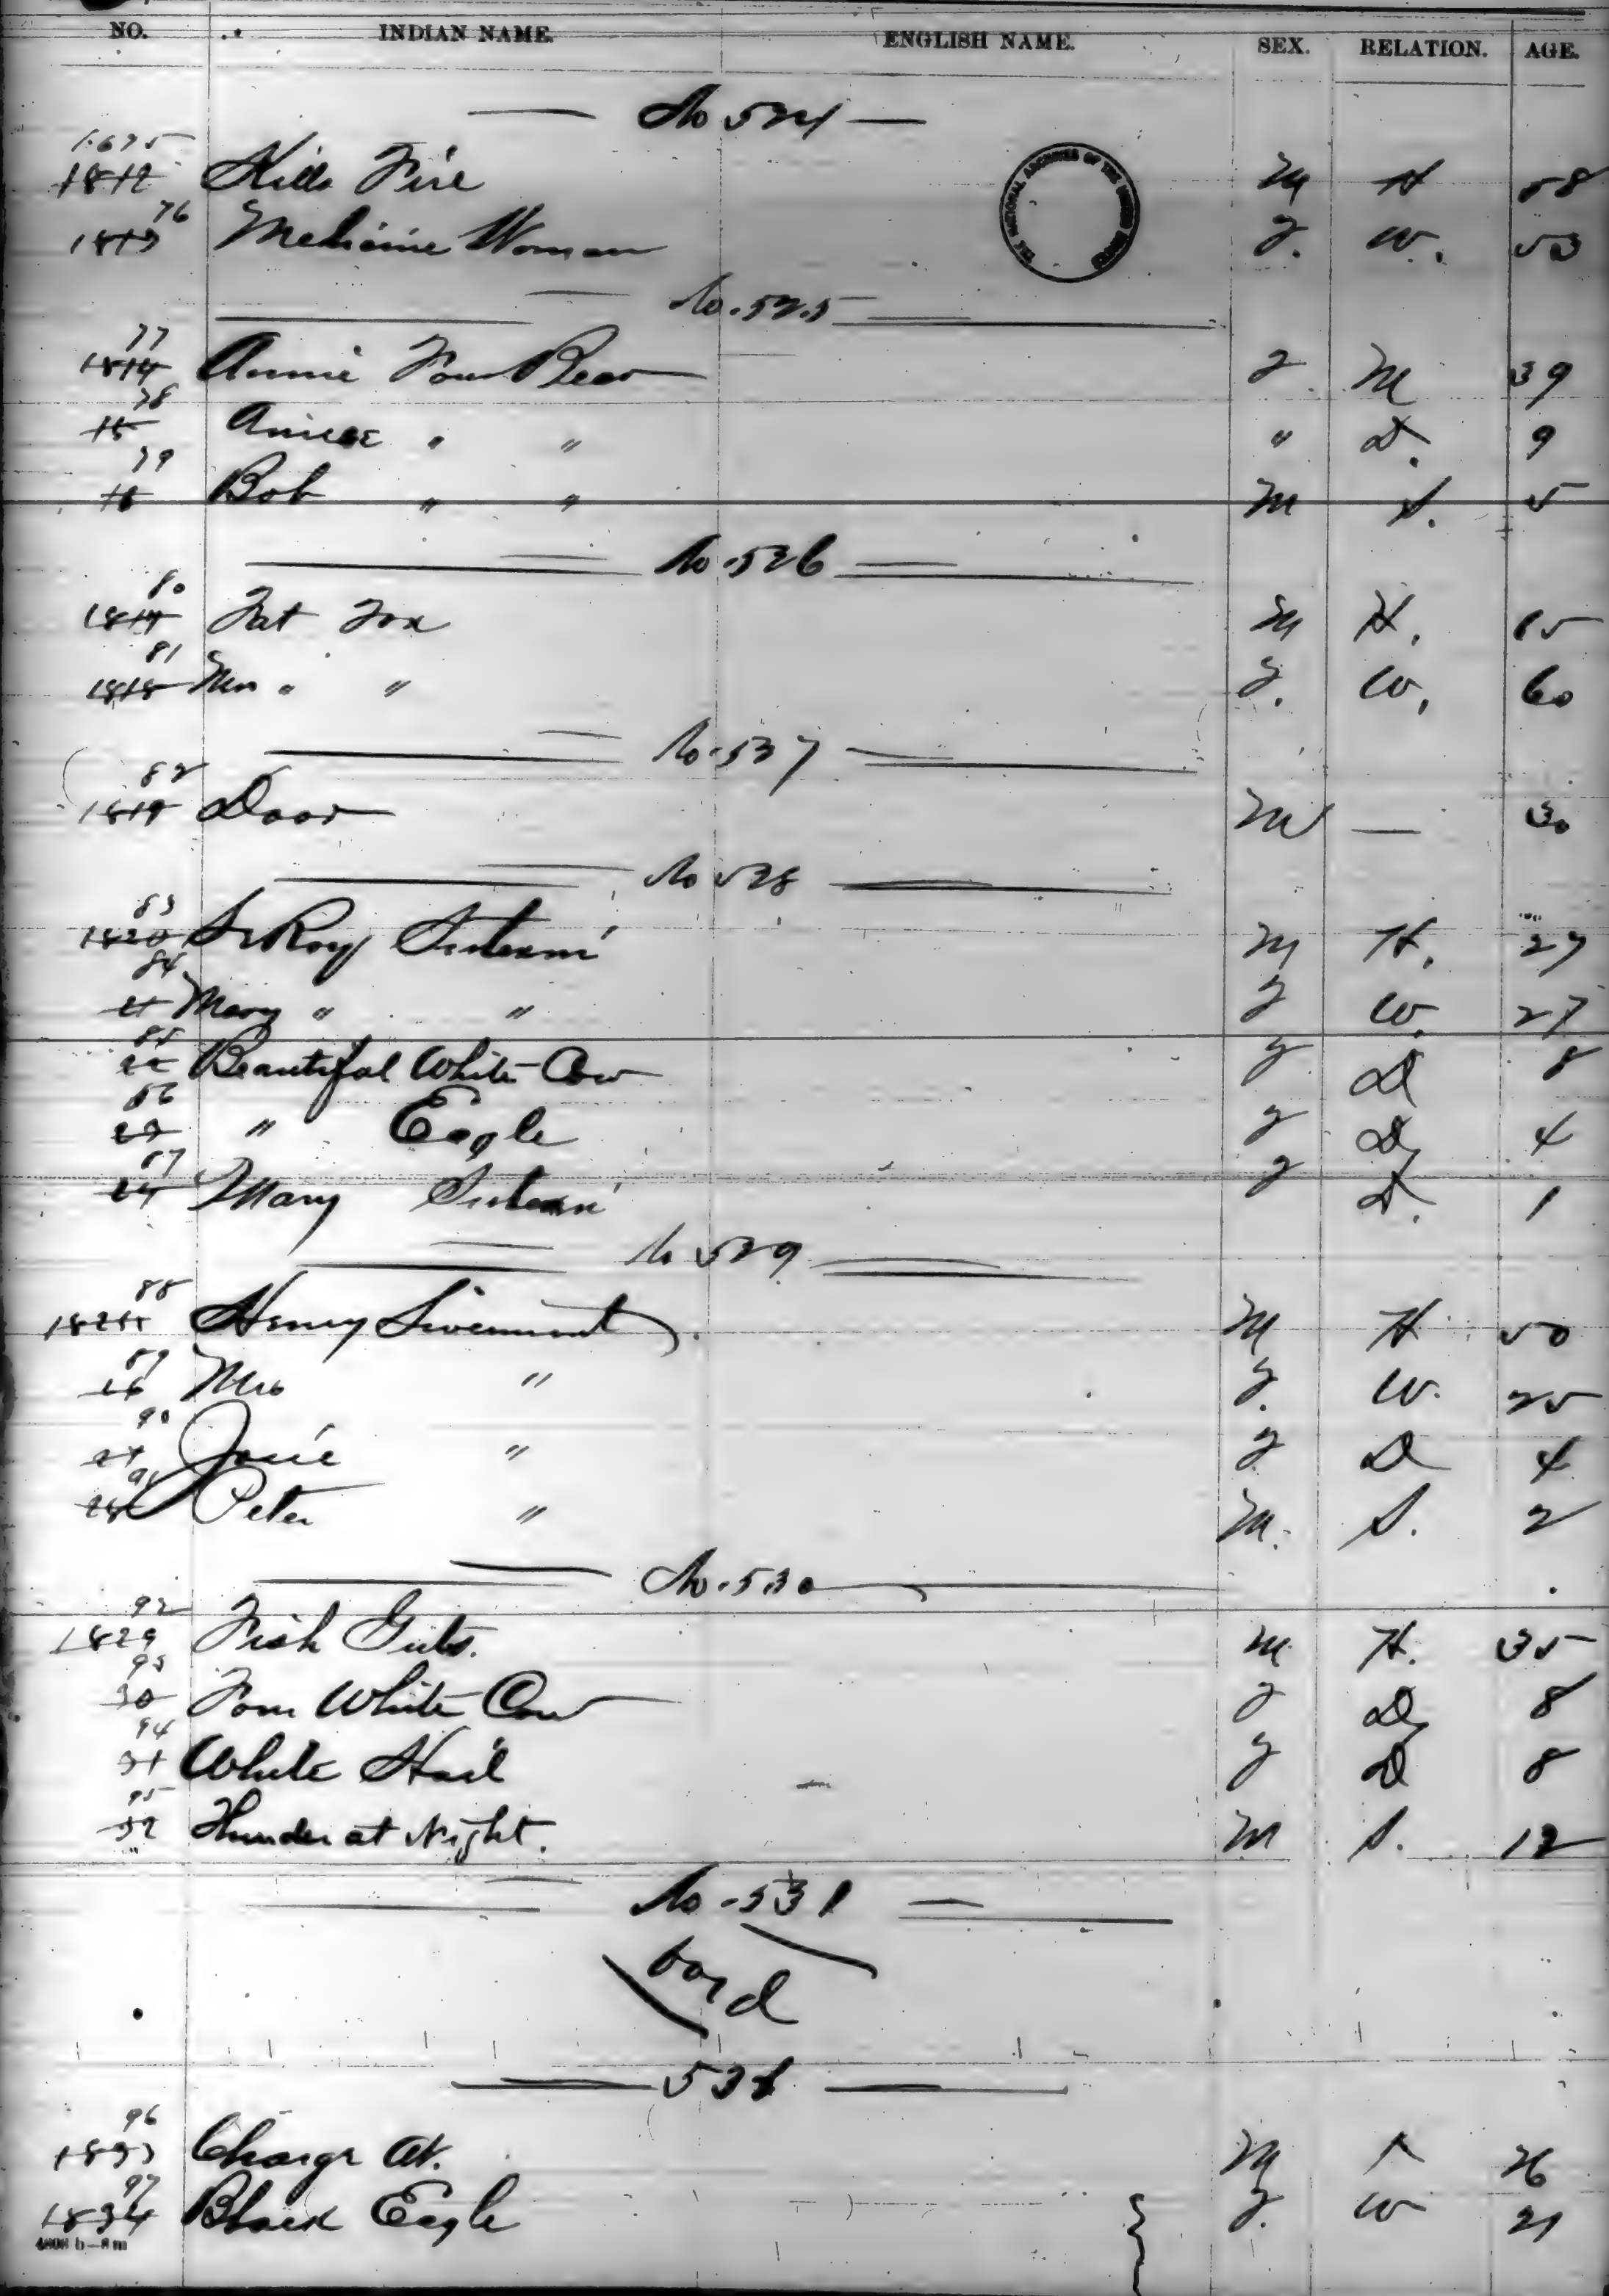 NO. INDIAN NAME. ENGLISH NAME. SEX. RELATION. AGE.
No 524
1675
1812 Kills Fire M H 58
76
1813 Medicine Woman F. W. 53
No. 525
77
1814 Annie Four Bear F M 39
78
15 " " " D. 9
79
16 Bob " " M S. 5
No. 526
80
1817 Fat Fox M H. 65
81
1818 Mrs " " F. W. 60
No. 527
82
1819 Door M — 30
No 528
83
1820 LeRoy M H. 27
84
21 Mary " " F W. 27
85
22 Beautiful White Cow F D 8
86
23 " Eagle F D 4
87
24 Mary F D. 1
No 529
88
1825 Henry Livermont M H 50
89
26 Mrs " F. W. 25
90
27 Josie " F D 4
91
28 Peter " M. S. 2
No. 530
92
1829 Fish Guts. M H. 35
93
30 Four White Cow F D 8
94
31 White Hail F D 8
95
32 Thunder at Night. M S. 12
No. 531
THE NATIONAL ARCHIVES OF THE UNITED STATES
96
1833 Charge At. M 26
97
1834 Black Eagle F. W 21
4808 b—8 m